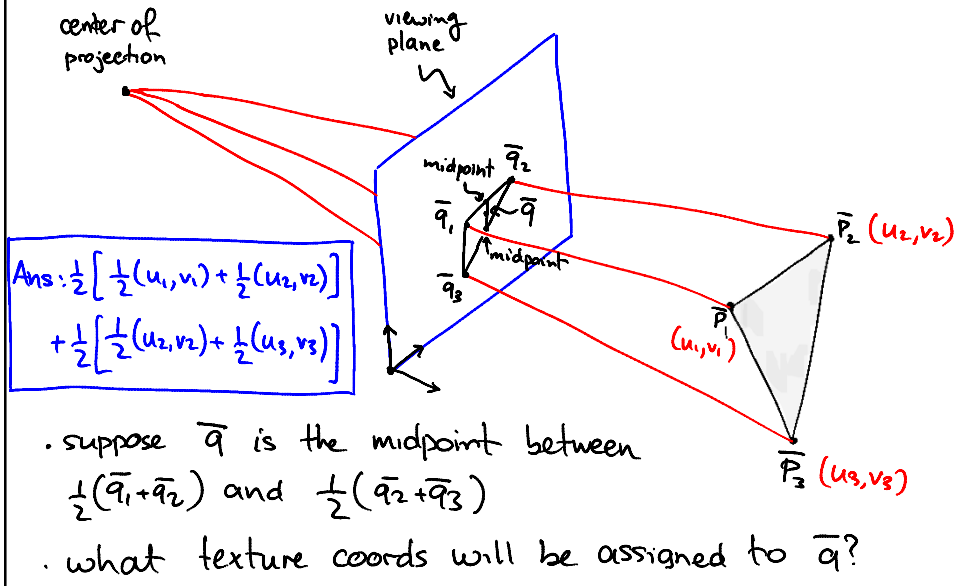 center of
projection
viewing
plane
midpoint
q̄₂
q̄₁
q̄
midpoint
q̄₃
P̄₂ (u₂,v₂)
P̄₁
(u₁,v₁)
P̄₃ (u₃,v₃)
Ans: ½[½(u₁,v₁) + ½(u₂,v₂)]
+ ½[½(u₂,v₂) + ½(u₃,v₃)]
· suppose q̄ is the midpoint between
½(q̄₁+q̄₂) and ½(q̄₂+q̄₃)
· what texture coords will be assigned to q̄?